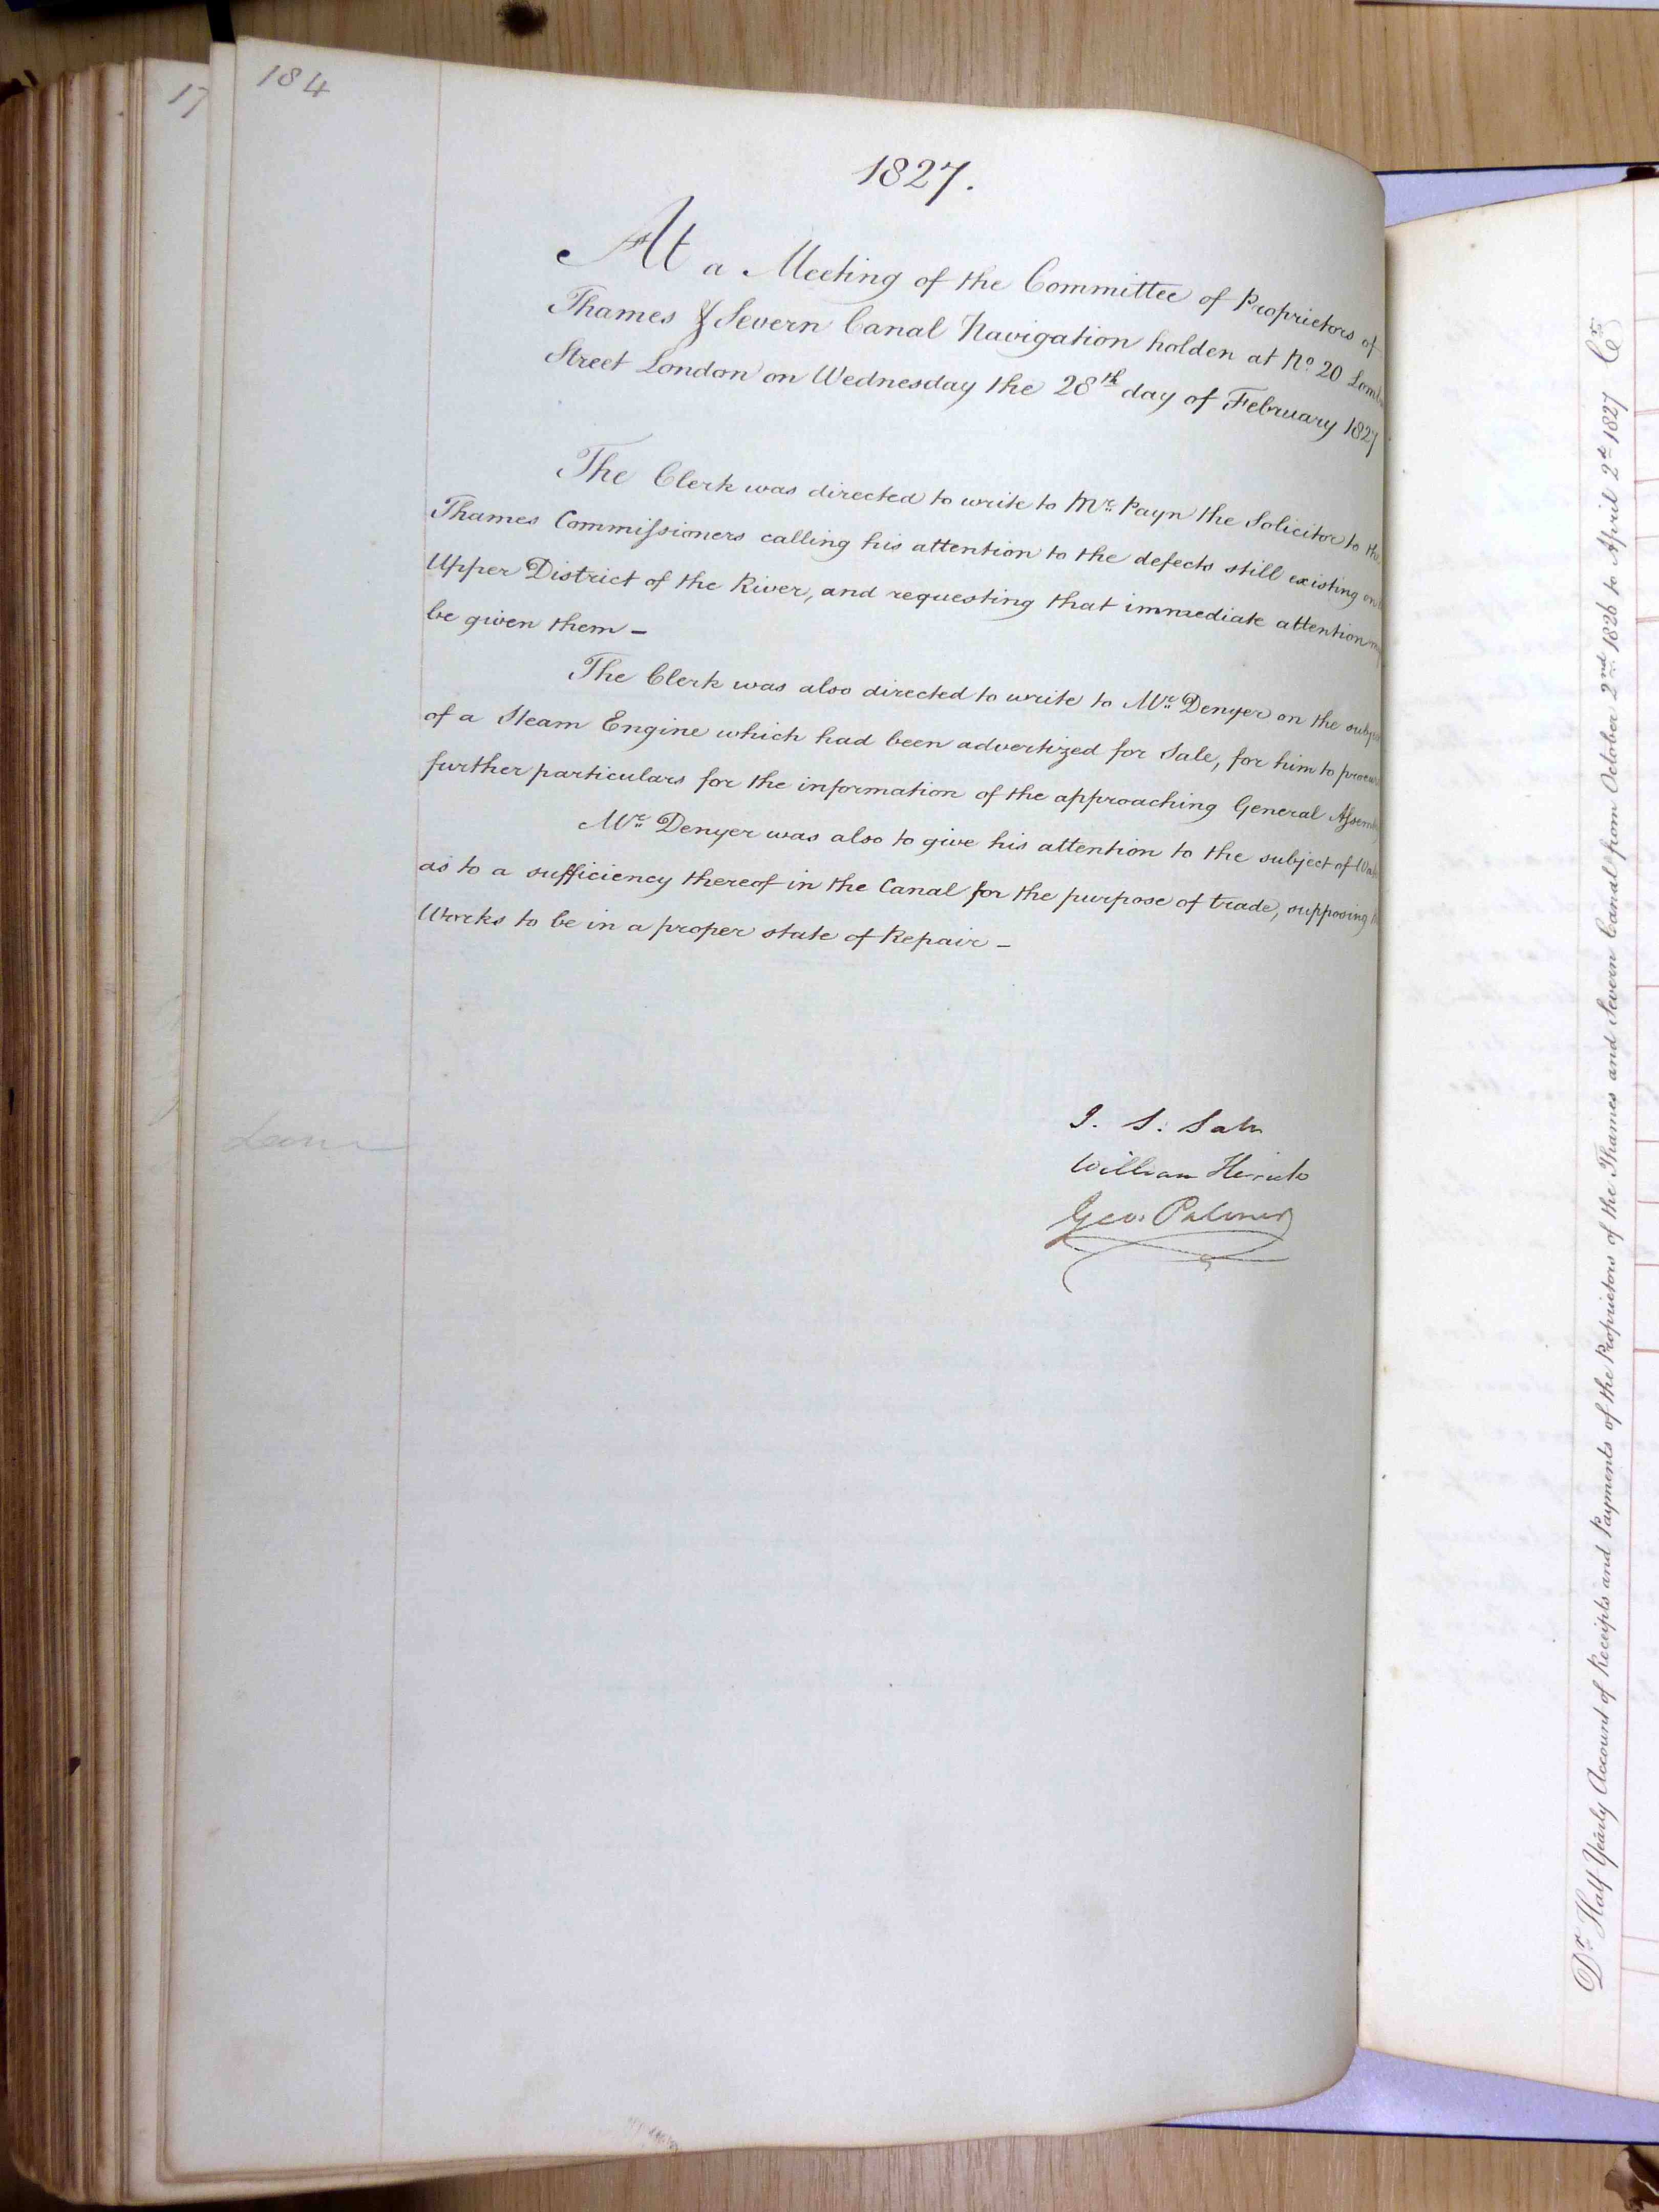 17
184
1827.
At a Meeting of the Committee of Proprietors of
Thames & Severn Canal Navigation holden at No. 20 Lomb
Street London on Wednesday the 28th day of February 1827
The Clerk was directed to write to Mr. Payn the Solicitor to the
Thames Commissioners calling his attention to the defects still existing on
Upper District of the River, and requesting that immediate attention
be given them –
The Clerk was also directed to write to Mr. Denyer on the subje
of a Steam Engine which had been advertized for Sale, for him to procu
further particulars for the information of the approaching General Assem
Mr. Denyer was also to give his attention to the subject of Wat
as to a sufficiency thereof in the Canal for the purpose of trade, supposing
Works to be in a proper state of Repair –
J. S. Salt
William Herrick
Geo: Palmer
Dr. Half Yearly Account of Receipts and Payments of the Proprietors of the Thames and Severn Canal from October 2nd 1826 to April 2d 1827 Cr.